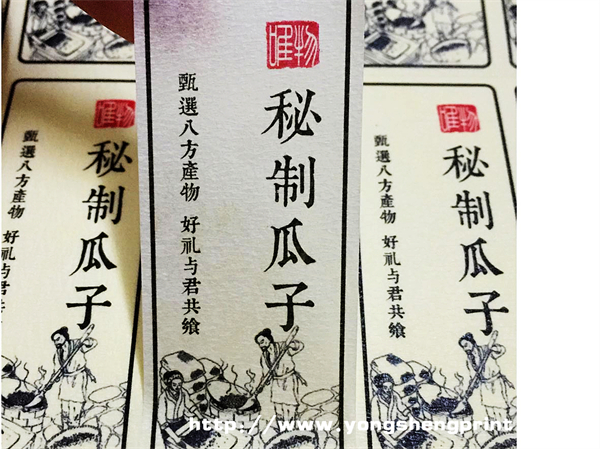 唯物
秘制瓜子
甄選八方產物 好礼与君共飨
唯物
秘制瓜子
甄選八方產物 好礼与君共飨
唯物
秘制瓜子
甄選八方產物 好礼与君共飨
http://www.yongshengprint.